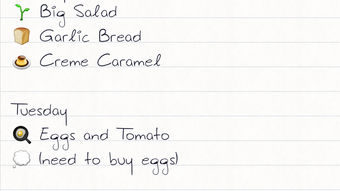 🌱 Big Salad
🍞 Garlic Bread
🍮 Creme Caramel
Tuesday
🍳 Eggs and Tomato
💭 (need to buy eggs)